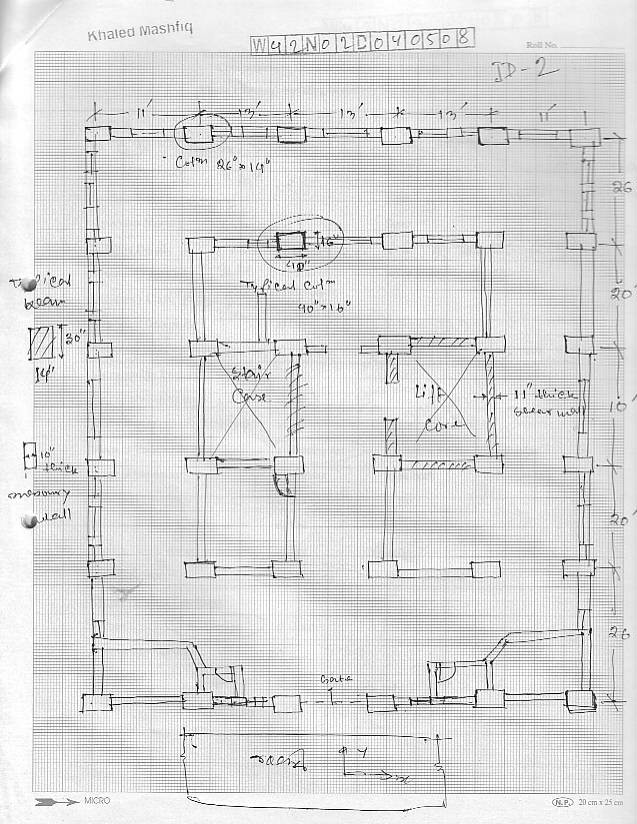 Khaled Mashfiq
W42N02D040508
Roll No.
ID-2
11' 13' 13' 13' 11'
Colmn 26"×14"
26
16"
40"
Typical Colmn
40"×16"
20'
Typical
beam
30"
14"
Stair
Case
Lift
Core
11" thick
shear wall
10'
10"
thick
masonry
wall
20'
26
Gate
Road
Y
x
MICRO
N.P. 20 cm x 25 cm